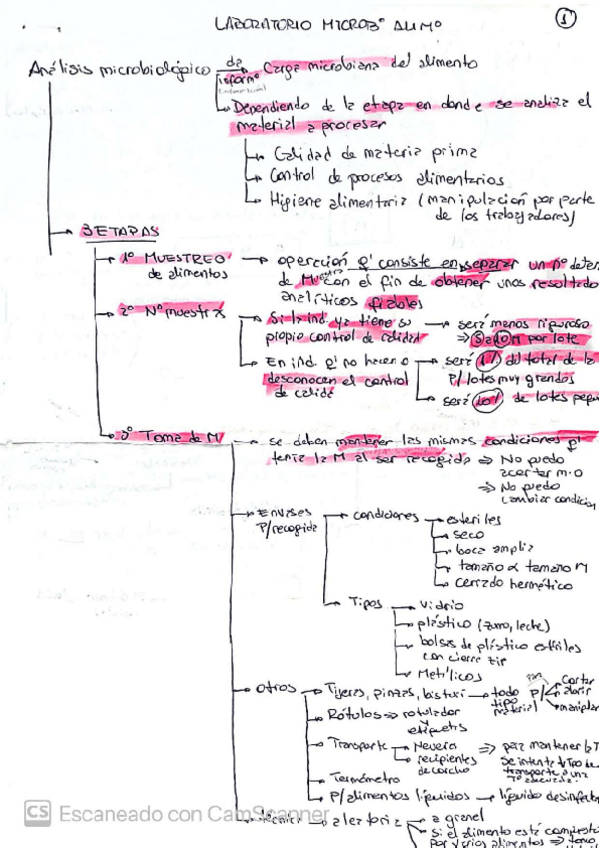 LABORATORIO MICROBº ALIMº
1
Análisis microbiológico da informº Carga microbiana del alimento
Dependiendo de la etapa en donde se analiza el
material a procesar
Calidad de materia prima
Control de procesos alimentarios
Higiene alimentaria (manipulación por parte
de los trabajadores)
3 ETAPAS
1º MUESTREO
de alimentos
operación q' consiste en separar un nº deter
de Muestra con el fin de obtener unos resultado
analíticos fiables
2º Nº muestras
Si la ind. ya tiene su
propio control de calidad
será menos riguroso
⇒ 5 a 10 M por lote
En ind. q' no hacen o
desconocen el control
de calidd
será 1% del total de la
P/lotes muy grandes
será 10% de lotes peque
3º Toma de M
se deben mantener las mismas condiciones q'
tenía la M al ser recogida ⇒ No puedo
acortar m.o
⇒ No puedo
cambiar condicion
Envases
P/recogida
condiciones
estériles
seco
boca amplia
tamaño α tamaño M
cerrado hermético
Tipos
vidrio
plástico (zumo, leche)
bolsas de plástico estériles
con cierre zip
Metálicos
Otros
Tijeras, pinzas, bisturí
todo
tipo
material
P/
cortar
abrir
manipular
Rótulos ⇒ rotulador
y
etiquetas
Transporte
Nevera
recipientes
de corcho
⇒ para mantener la T
Termómetro
P/alimentos líquidos → líquido desinfecta
CS Escaneado con CamScanner
Técnica
aleatoria
a granel
Si el alimento está compuesto
por varios alimentos ⇒ tomo